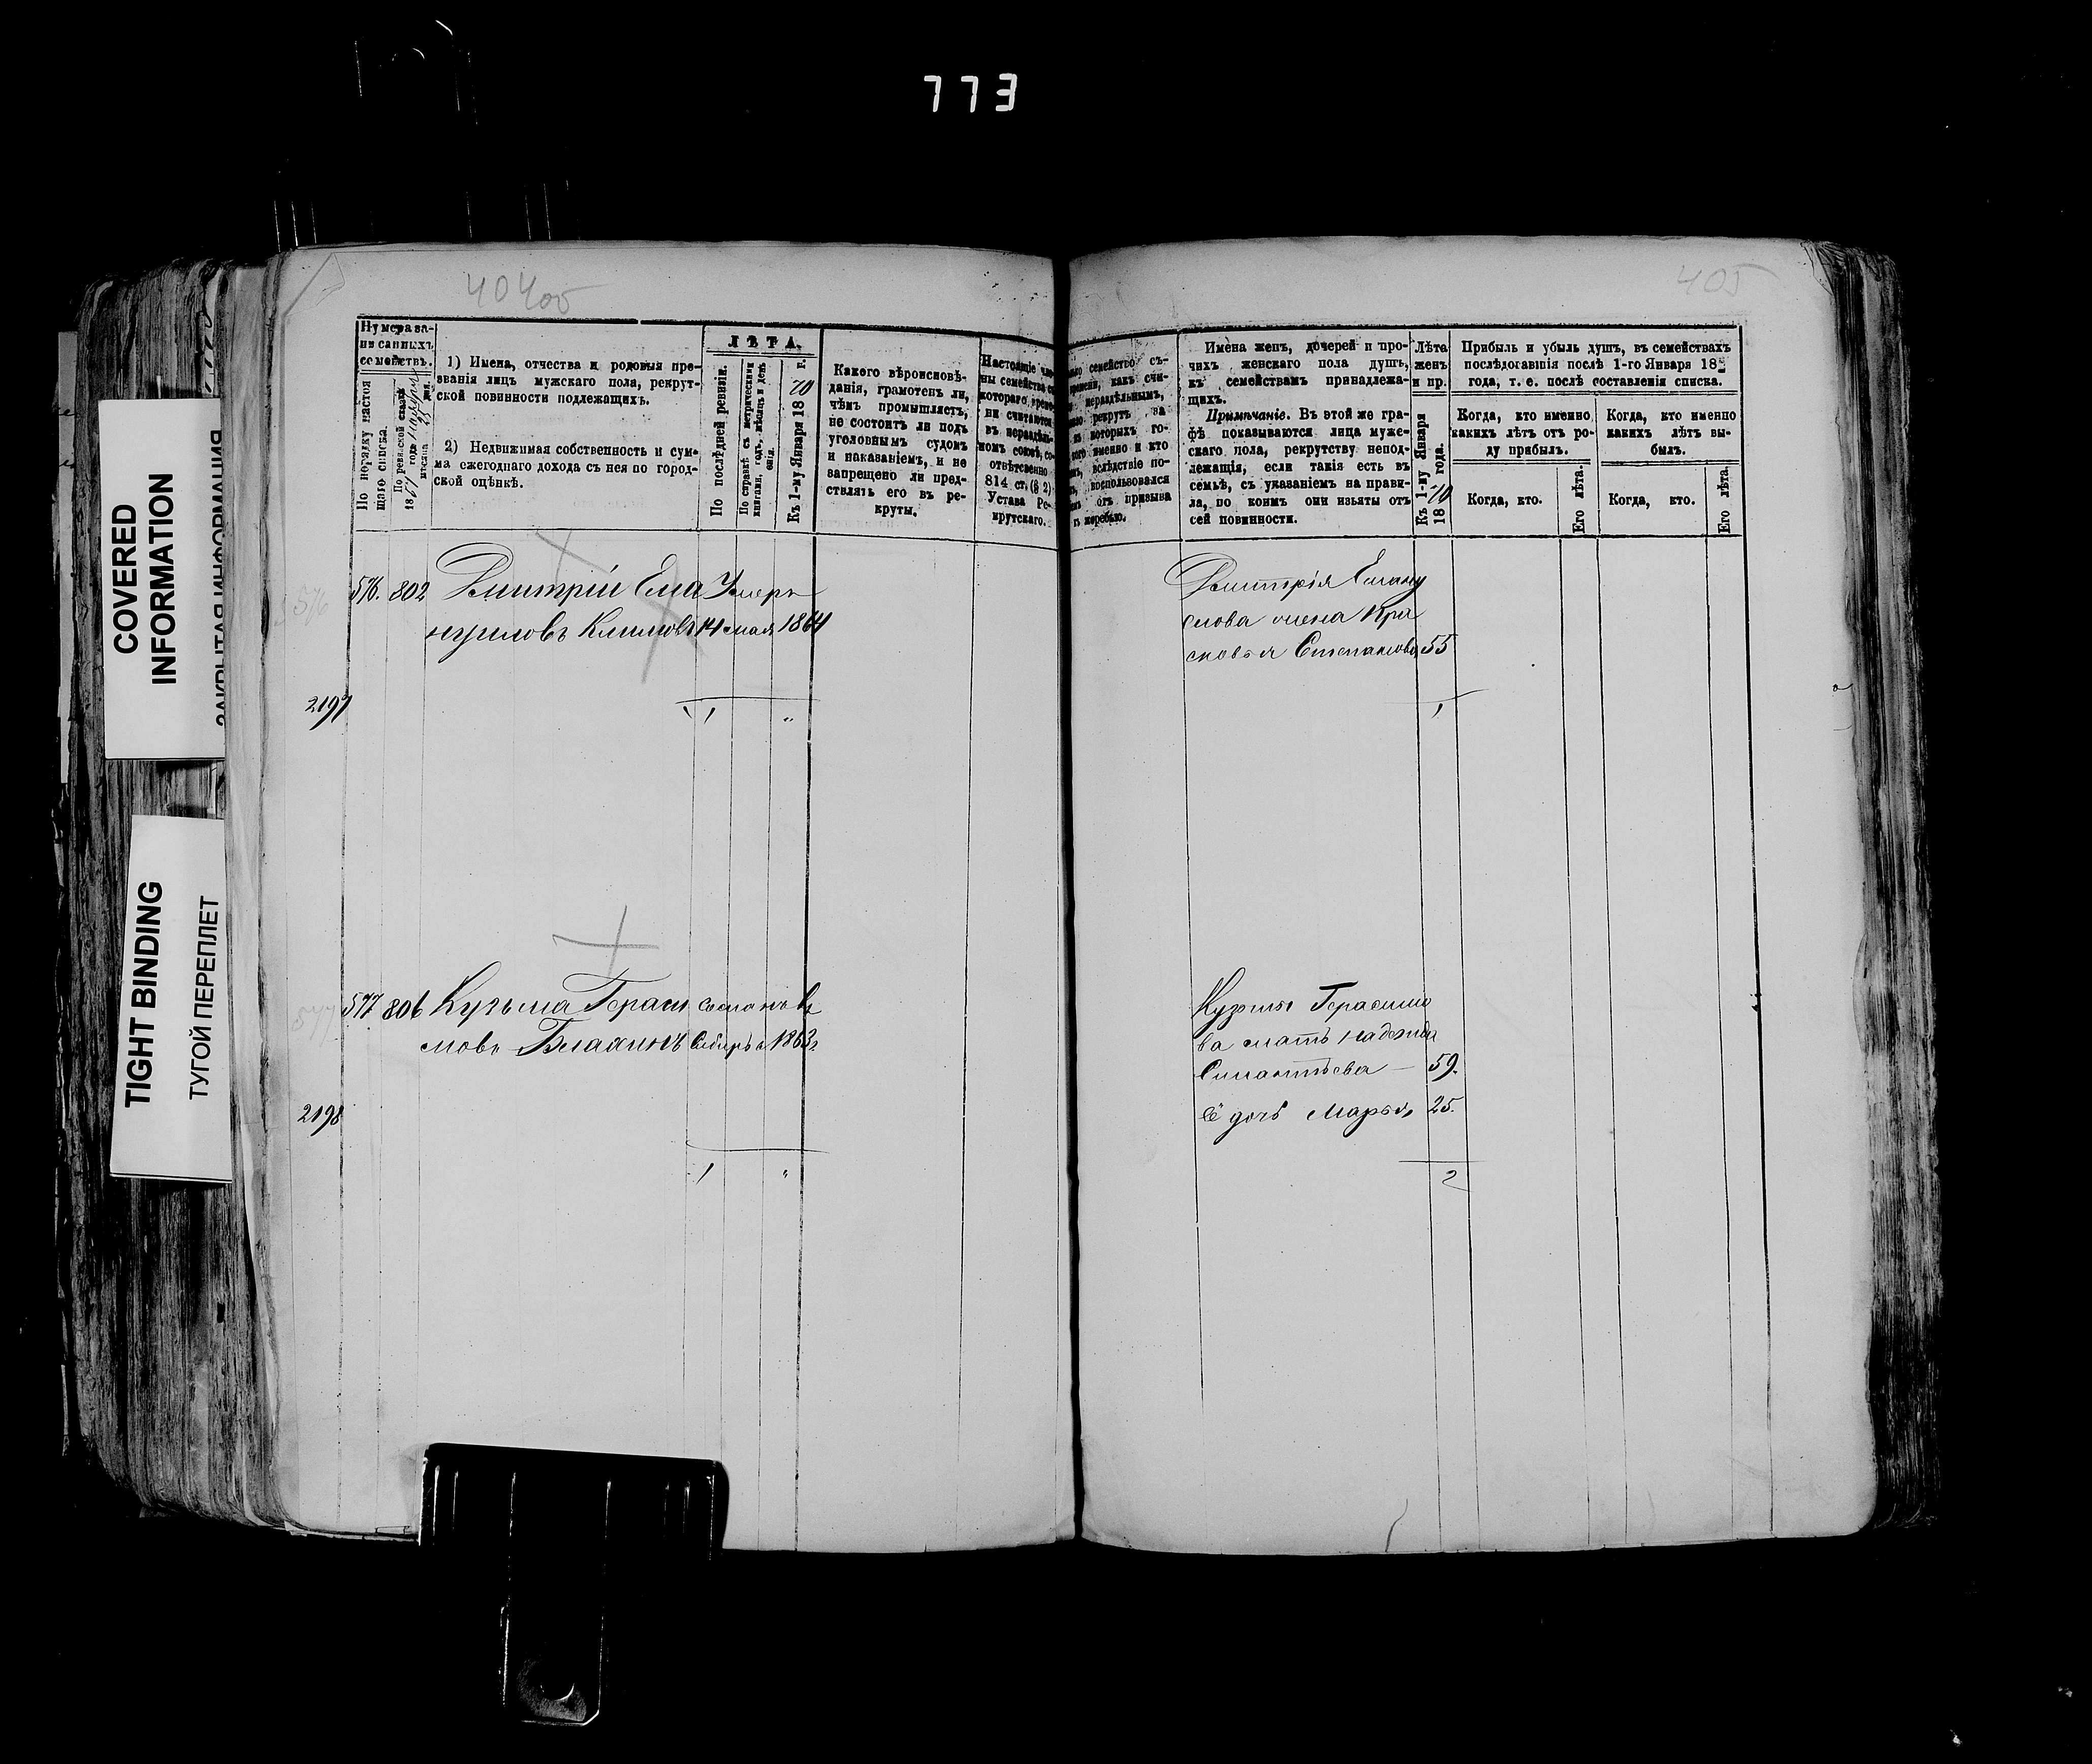 773
COVERED
INFORMATION
TIGHT BINDING
ТУГОЙ ПЕРЕПЛЕТ
405
Нумера за-
писанныхъ
семействъ.
По порядку настоя
щаго списка.
По ревизской сказкѣ
1) Имена, отчества и родовыя про-
званія лицъ мужскаго пола, рекрут-
ской повинности подлежащихъ.
2) Недвижимая собственность и сум-
ма ежегоднаго дохода съ нея по город-
ской оцѣнкѣ.
ЛѢТА.
По послѣдней ревизіи.
По справкѣ съ метрическими
книгами, годъ, мѣсяцъ и день
Къ 1-му Января 1870 г.
Какого вѣроисповѣ-
данія, грамотенъ ли,
чѣмъ промышляетъ,
не состоитъ ли подъ
уголовнымъ судомъ
и наказаніемъ, и не
запрещено ли пред-
ставлять его въ ре-
круты.
Настоящіе чле-
ны семейства съ
котораго време-
ни считаются
въ нераздѣль-
номъ союзѣ, со-
отвѣтственно
814 ст. (§ 2)
Устава Ре-
крутскаго.
семейство съ-
какъ счи-
нераздѣльнымъ,
рекрутъ за
которыхъ го-
именно и кто
вслѣдствіе по-
воспользовался
отъ призыва
жеребью.
Имена женъ, дочерей и про-
чихъ женскаго пола душъ,
къ семействамъ принадлежа-
щихъ.
Примѣчаніе. Въ этой же гра-
фѣ показываются лица муже-
скаго пола, рекрутству непод-
лежащія, если такія есть въ
семьѣ, съ указаніемъ на прави-
ла, по коимъ они изъяты отъ
сей повинности.
Лѣта
женъ
и пр.
Къ 1-му Января
1870 года.
Прибыль и убыль душъ, въ семействахъ
послѣдовавшія послѣ 1-го Января 18
года, т. е. послѣ составленія списка.
Когда, кто именно,
какихъ лѣтъ отъ ро-
ду прибылъ.
Когда, кто именно
какихъ лѣтъ вы-
былъ.
Когда, кто.
Его лѣта.
Когда, кто.
Его лѣта.
576
576. 802 Дмитрій Ема Умеръ
нуиловъ Климовъ 14 мая 1864
2197
1 "
Дмитрія Еману
илова жена Пра
сковья Степанова 55
1
577
577 806 Кузьма Герасі Сосланъ въ
мовъ Сибирь 1863г.
2198
1 "
Кузьмы Герасимо
ва мать Надежда
59.
её дочь Марья 25.
2